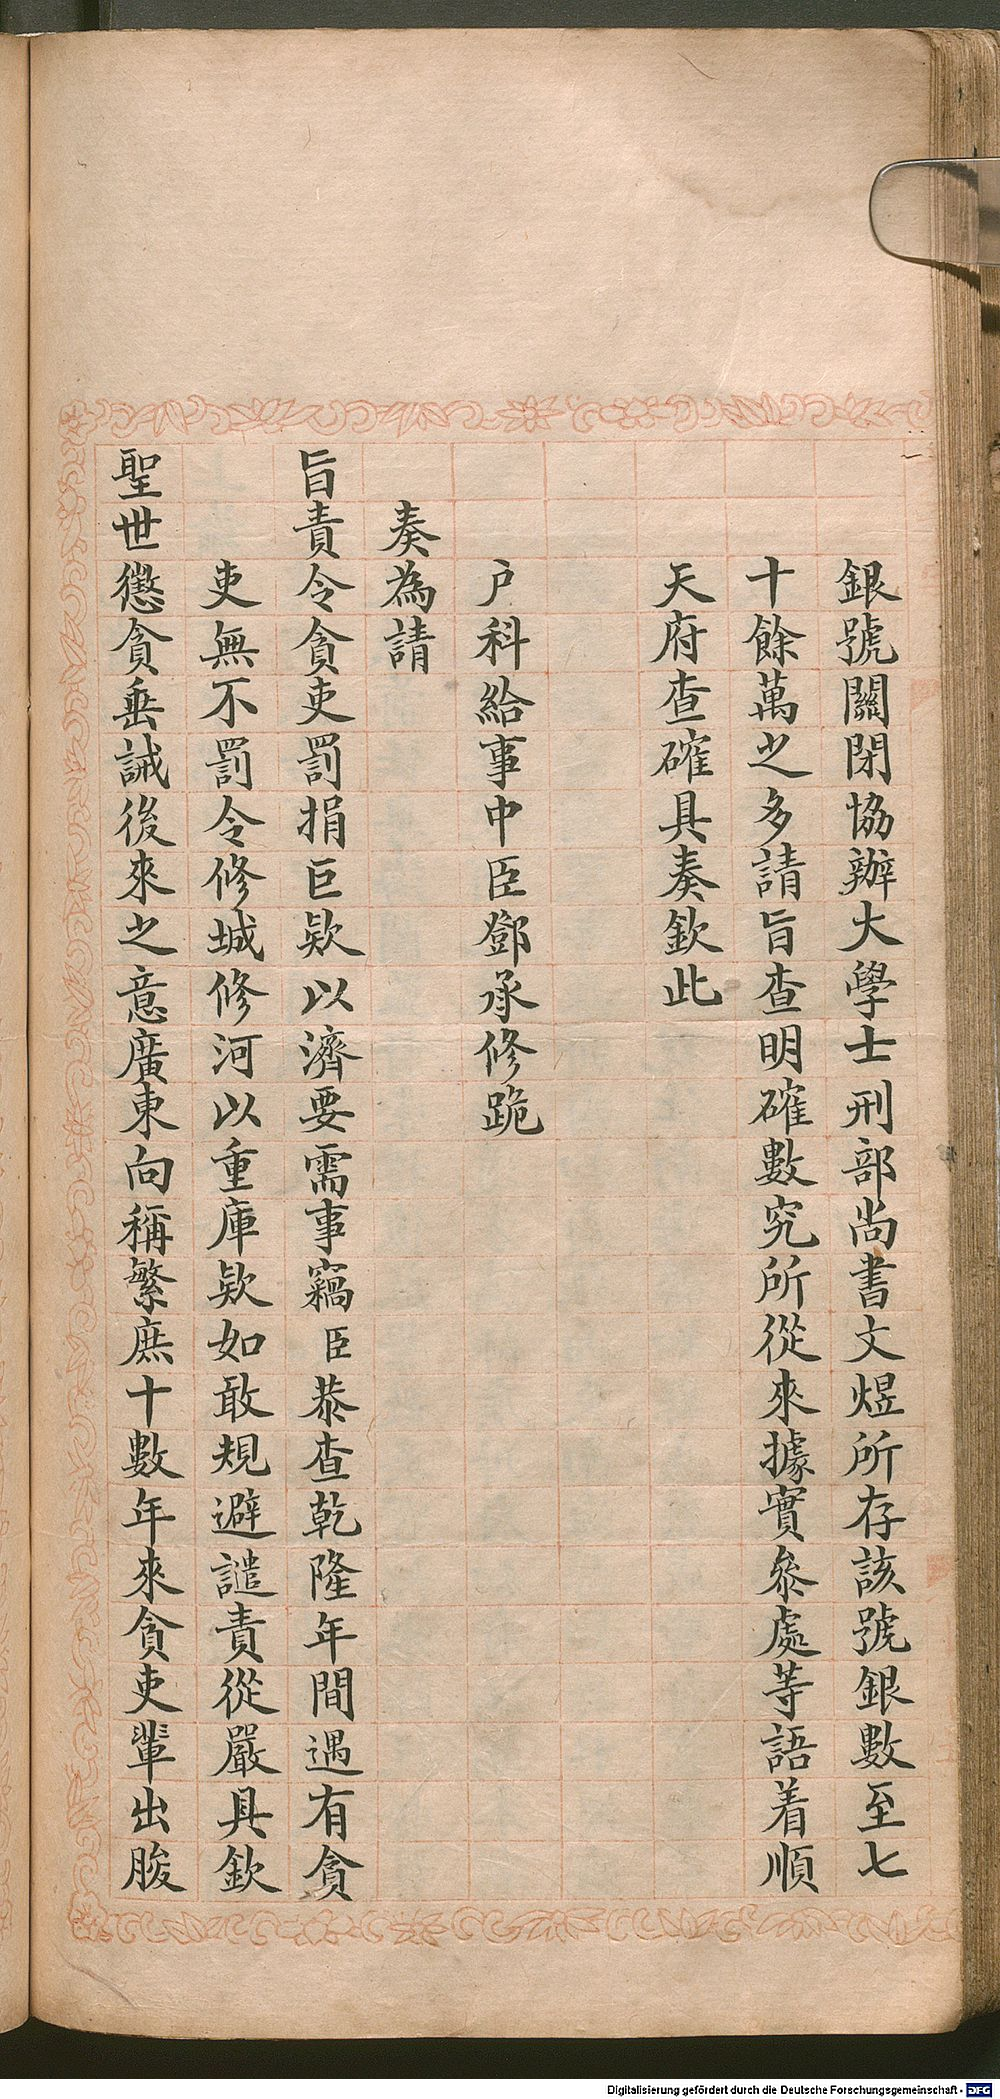 銀號關閉協辦大學士刑部尚書文煜所存該號銀數至七
十餘萬之多請旨查明確數究所從來據實參處等語着順
天府查確具奏欽此
户科給事中臣鄧承修跪
奏為請
旨責令貪吏罰捐巨欵以濟要需事竊臣恭查乾隆年間遇有貪
吏無不罰令修城修河以重庫欵如敢規避譴責從嚴具欽
聖世懲貪垂誡後來之意廣東向稱繁庶十數年來貪吏輩出朘
Digitalisierung gefördert durch die Deutsche Forschungsgemeinschaft - DFG